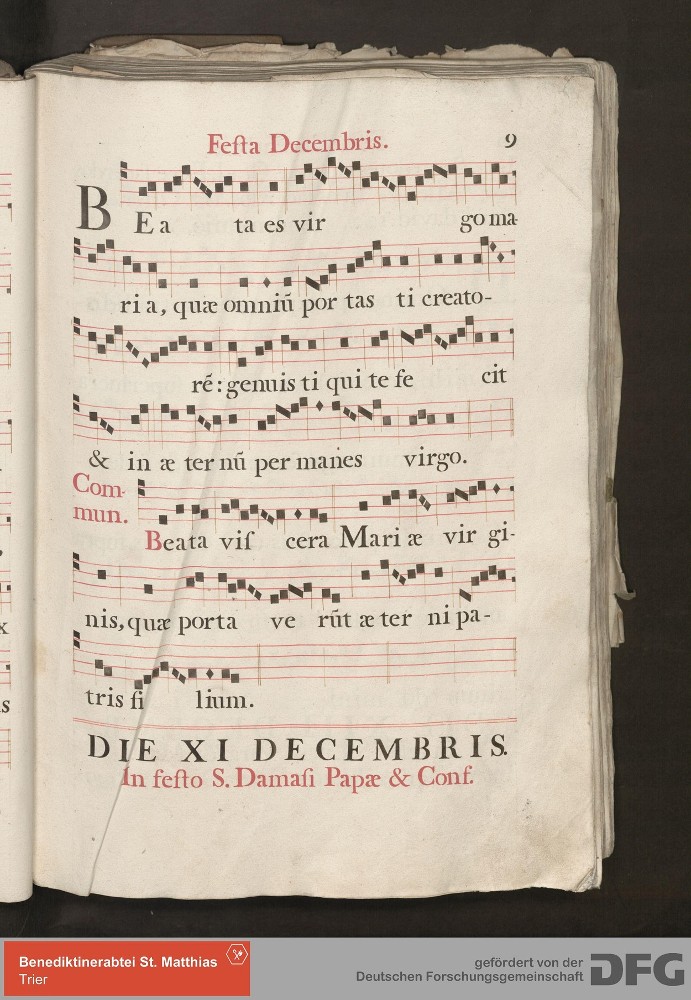 Feſta Decembris. 9
BEa ta es vir go ma-
ri a, quæ omniũ por tas ti creato-
rẽ: genuis ti qui te fe cit
& in æ ter nũ per manes virgo.
Com-
mun.
Beata viſ cera Mari æ vir gi-
nis, quæ porta ve rũt æ ter ni pa-
tris fi lium.
DIE XI DECEMBRIS.
In feſto S. Damaſi Papæ & Conf.
x
s
Benediktinerabtei St. Matthias
Trier
gefördert von der
Deutschen Forschungsgemeinschaft
DFG